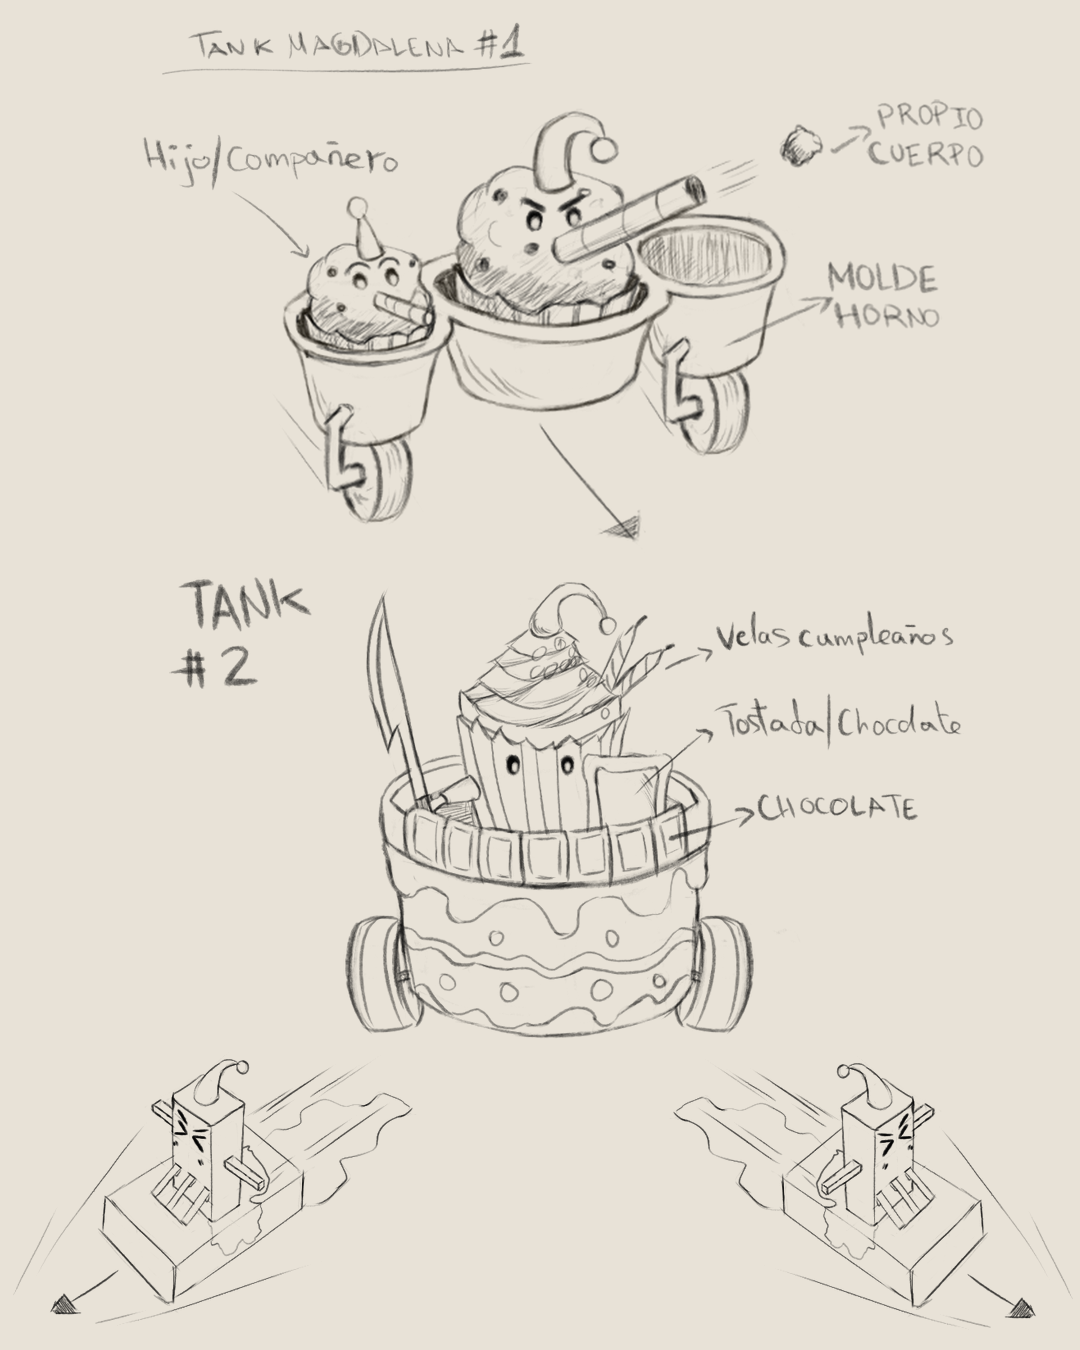 TANK MAGDALENA #1
Hijo/Compañero
PROPIO
CUERPO
MOLDE
HORNO
TANK
#2
Velas cumpleaños
Tostada/Chocolate
CHOCOLATE